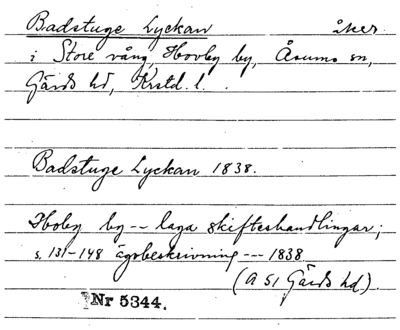 Badstuge Lyckan åker
i Store vång, Hovby by, Åsums sn,
Gärds hd, Krstd. l.
Badstuge Lyckan 1838.
Hoby by -- laga skifteshandlingar;
s. 131-148 ägobeskrivning --- 1838
(A 51 Gärds hd).
Nr 5344.